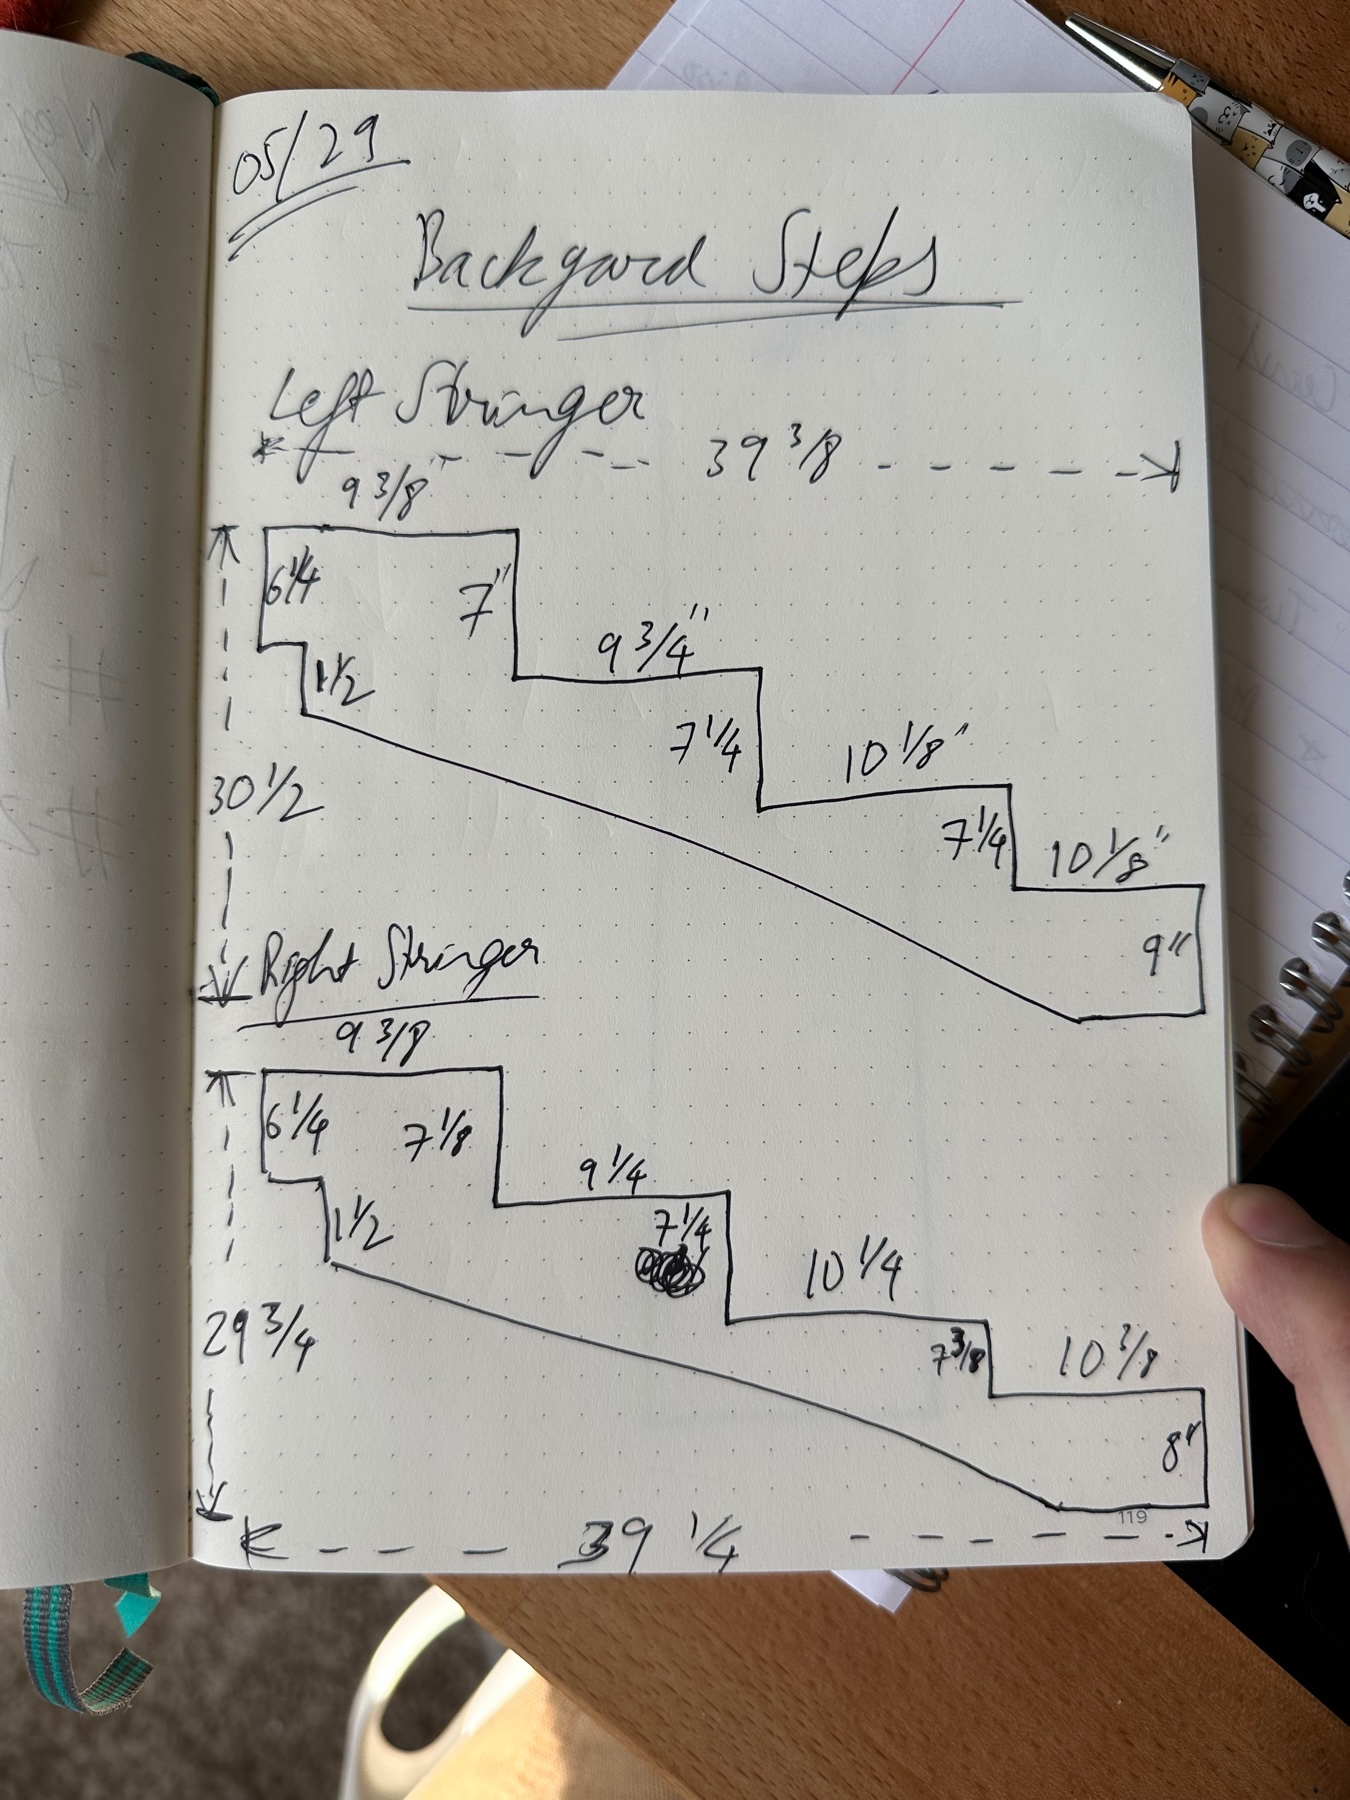 05/29
Backyard Steps
Left Stringer
39 3/8
9 3/8"
6 1/4
7"
9 3/4"
1 1/2
7 1/4
10 1/8"
30 1/2
7 1/4
10 1/8"
9"
Right Stringer
9 3/8
6 1/4
7 1/8
9 1/4
1 1/2
7 1/4
10 1/4
29 3/4
7 3/8
10 3/8
8"
119
39 1/4